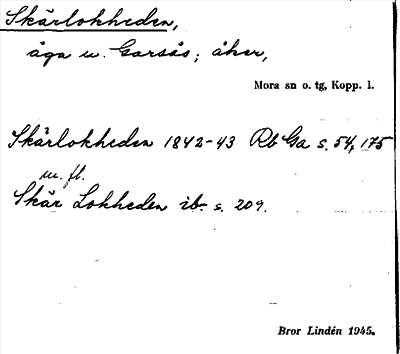 Skärlokheden,
äga u. Garsås; åker,
Mora sn o. tg, Kopp. l.
Skärlokheden 1842-43 Rb Ga s. 54, 175
m. fl.
Skär Lokheden ib. s. 209.
Bror Lindén 1945.